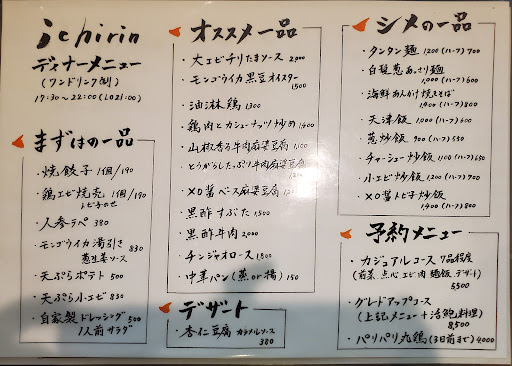 ichirin
ディナーメニュー
(ワンドリンク制)
17:30〜22:00(LO21:00)
まずはの一品
・焼餃子 1個/190
・鶏エビ焼売 1個/190
トビ子のせ
・人参ラペ 380
・モンゴウイカ湯引き 830
葱生姜ソース
・天ぷらポテト 500
・天ぷら小エビ 830
・自家製ドレッシング 500
1人前サラダ
オススメ一品
・大エビチリたまソース 2,000
・モンゴウイカ黒豆オイスター
1500
・油淋鶏 1,300
・鶏肉とカシューナッツ炒め 1,400
・山椒香る牛肉麻婆豆腐 1,100
・とうがらしたっぷり牛肉麻婆豆腐
・XO醤ベース麻婆豆腐
・黒酢すぶた 1,500
・黒酢牛肉 2,000
・チンジャオロース 1800
・中華パン(蒸or揚) 150
デザート
・杏仁豆腐 カラメルソース
380
シメの一品
・タンタン麺 1200(ハーフ)700
・白髪葱あっさり麺
1,000(ハーフ)600
・海鮮あんかけ焼きそば
1,400(ハーフ)800
・天津飯 1,000(ハーフ)600
・葱炒飯 900(ハーフ)550
・チャーシュー炒飯 1100(ハーフ)650
・小エビ炒飯 1,200(ハーフ)700
・XO醤トビ子炒飯
1,400(ハーフ)800
予約メニュー
・カジュアルコース 7品程度
(前菜 点心 エビ 肉 麺飯 デザート)
5,500
・グレードアップコース
(上記メニュー+活鮑料理)
8,500
・パリパリ丸鶏(3日前まで)4,000